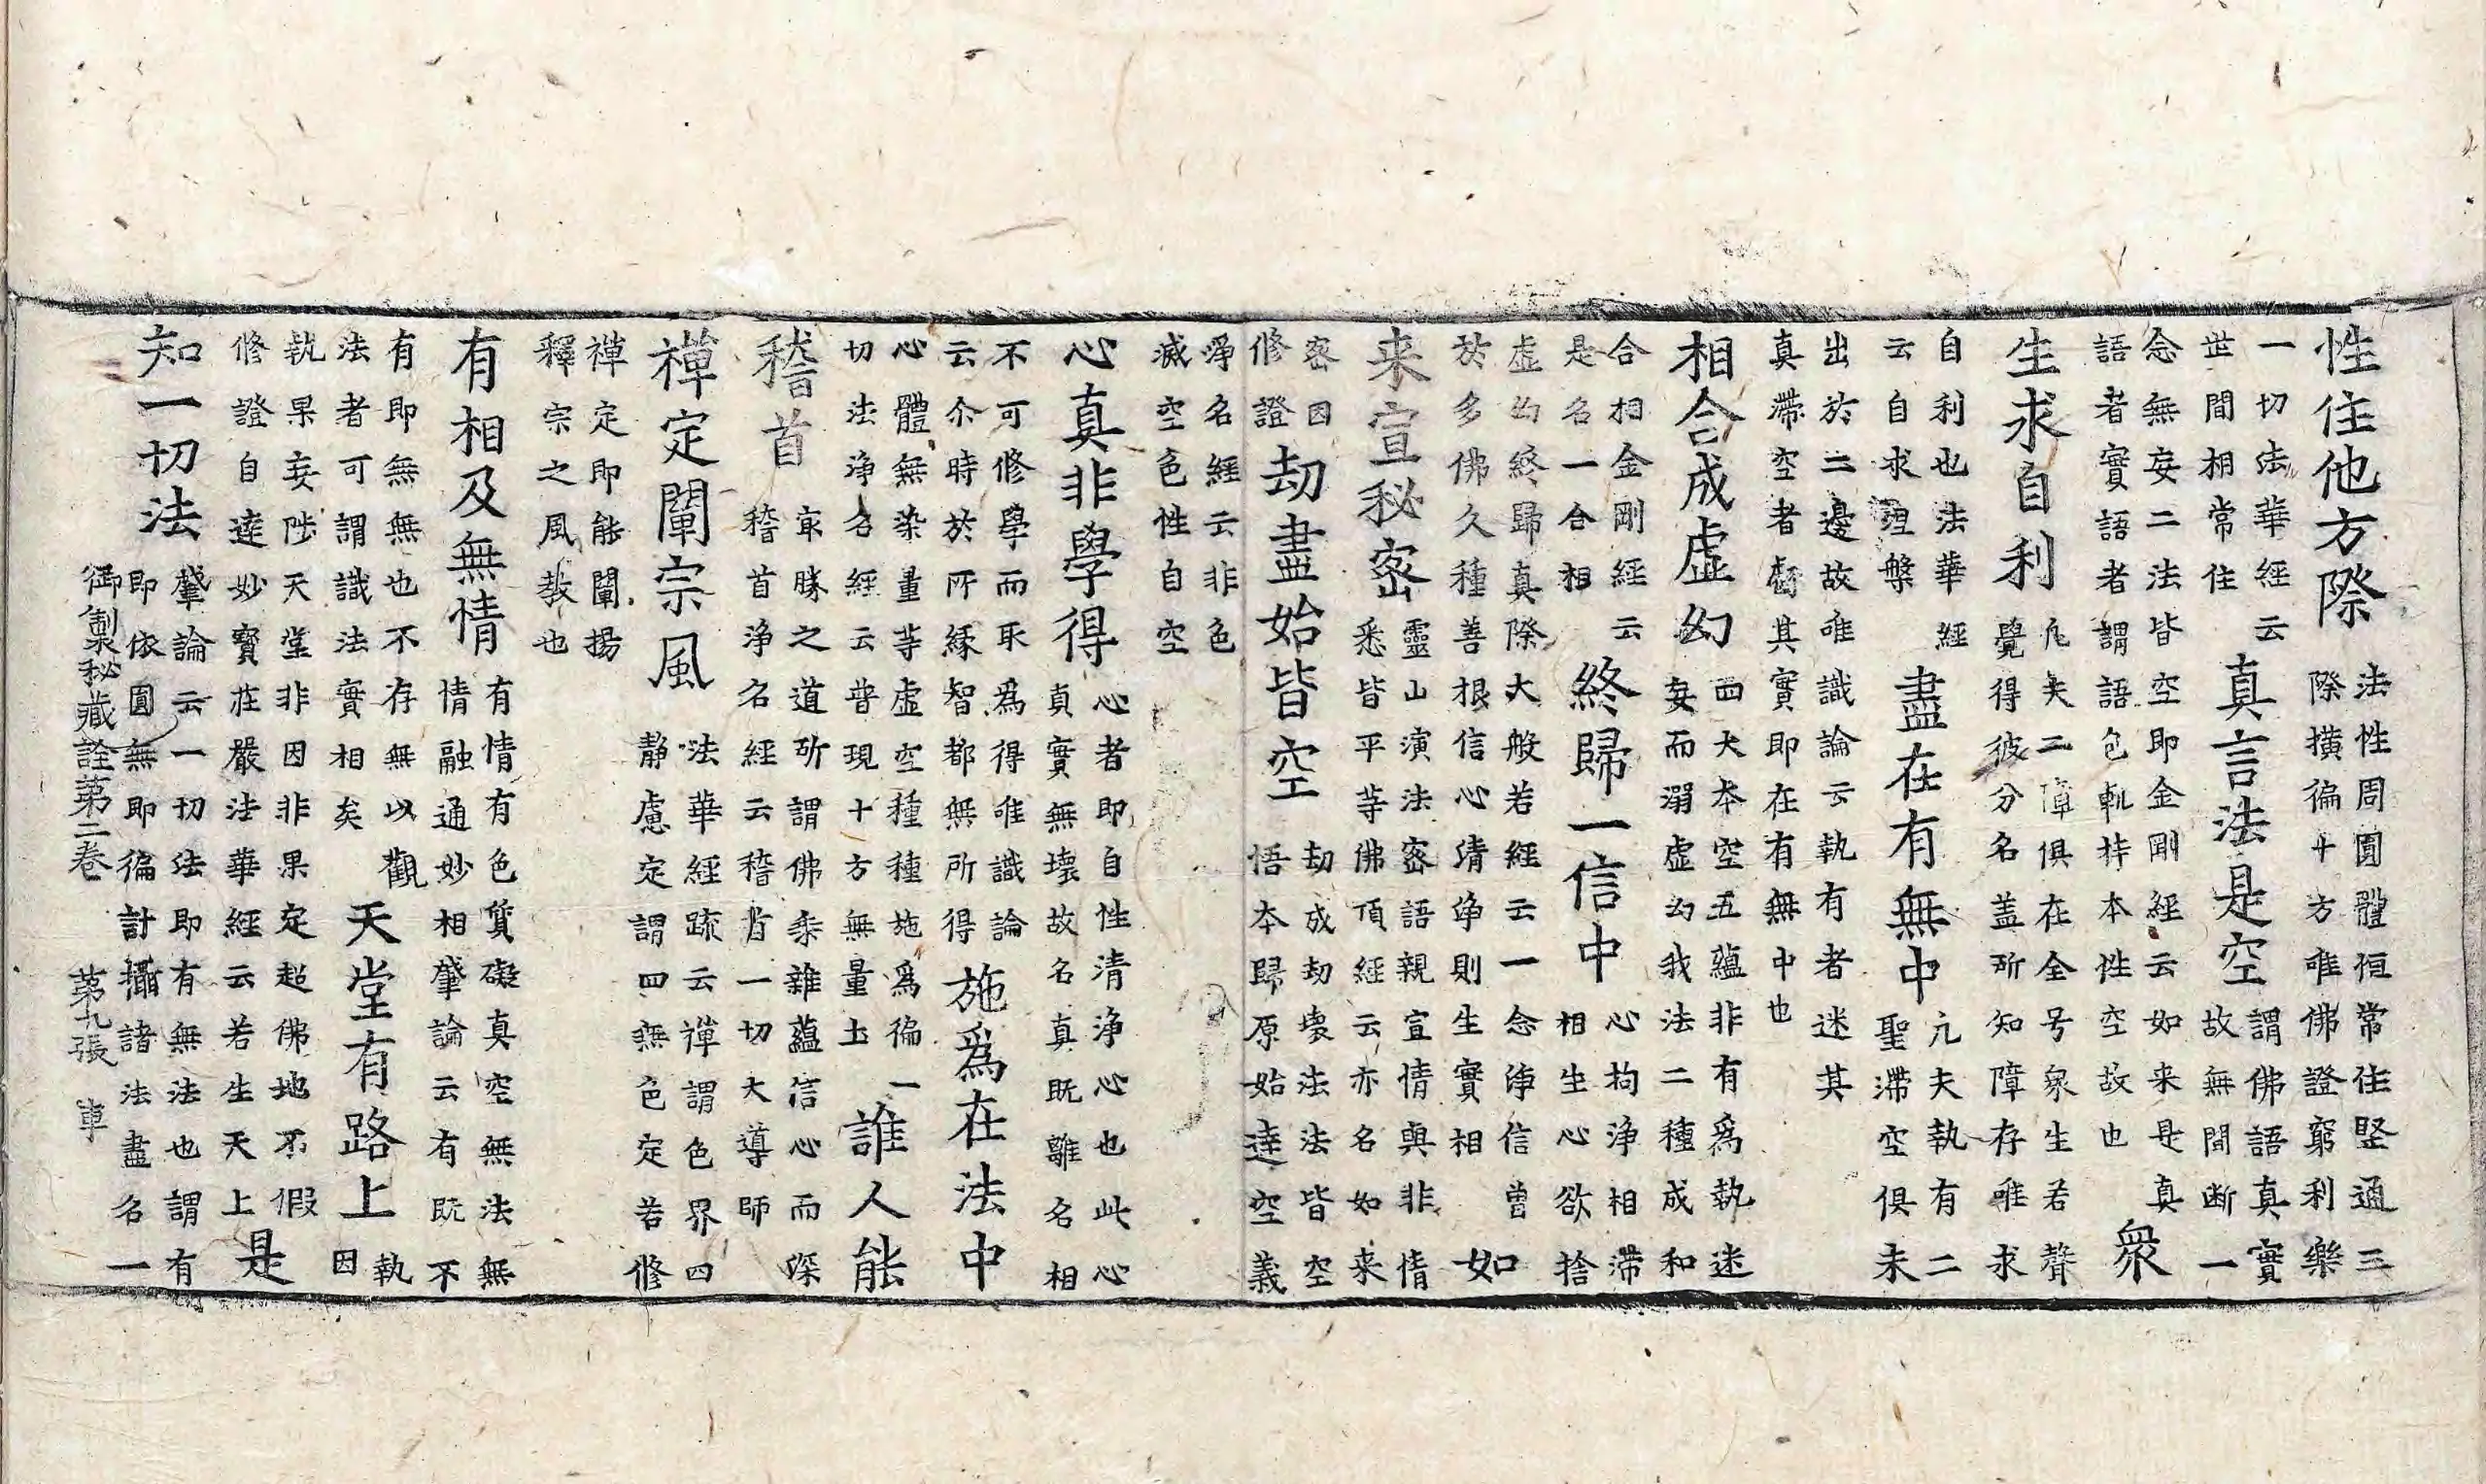 性住他方際
法性周圓體恒常住堅通三
際横徧十方唯佛證窮利樂
一切法華經云
世間相常住
真言法是空
謂佛語真實
故無間断一
念無妄二法皆空即金剛經云如来是真
語者實語者謂語包軌持本性空故也
衆
生求自利
凡夫二障俱在全号衆生若聲
覺得彼分名盖所知障存唯求
自利也法華經
云自求涅槃
盡在有無中
凢夫執有二
聖滞空俱未
出於二邊故唯識論云執有者迷其
真滯空者虧其實即在有無中也
相合成虚幻
四大本空五藴非有爲執迷
妄而溺虚幻我法二種成和
合相金剛經云
是名一合相
終歸一信中
心拘浄相滯
相生心欲捨
虚幻終歸真際大般若經云一念淨信曾
扵多佛久種善根信心清淨則生實相
如
来宣秘密
靈山演法密語親宣情與非情
悉皆平等佛頂經云亦名如来
密因
修證
劫盡始皆空
劫成劫壊法法皆空
悟本歸原始達空義
淨名經云非色
滅空色性自空
心真非學得
心者即自性清浄心也此心
真實無壊故名真既離名相
不可修學而取爲得唯識論
云尒時於所縁智都無所得
施爲在法中
心體無染量等虚空種種施爲徧一
切法淨名經云普現十方無量土
誰人能
稽首
冣勝之道所謂佛乘雜藴信心而深
稽首浄名經云稽首一切大導師
禪定闡宗風
法華經疏云禪謂色界四
静慮定謂四無色定若修
禅定即能闡揚
釋宗之風教也
有相及無情
有情有色質礙真空無法無
情融通妙相肇論云有既不
有即無無也不存無以觀
法者可謂識法實相矣
天堂有路上
執
因
執果妄陟天堂非因非果定超佛地不假
修證自達妙寳莊嚴法華經云若生天上
是
知一切法
肇論云一切法即有無法也謂有
即依圓無即徧計攝諸法盡名一
御製秘藏詮第二卷 第九張 車